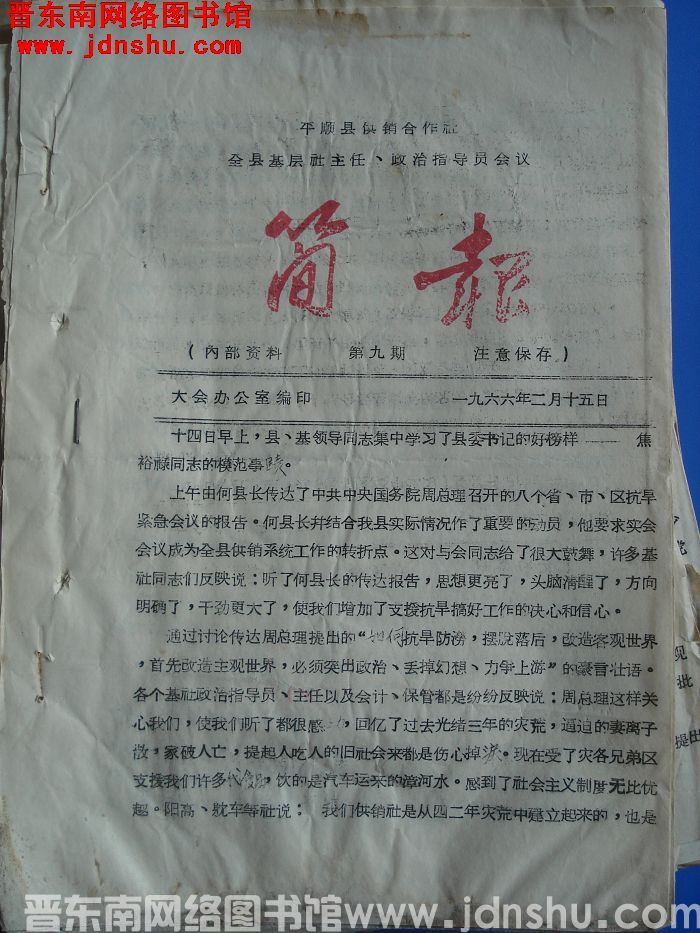 晋东南网络图书馆
www.jdnshu.com
平顺县供销合作社
全县基层社主任、政治指导员会议
简报
(内部资料 第九期 注意保存)
大会办公室编印 一九六六年二月十五日
十四日早上，县、基领导同志集中学习了县委书记的好榜样——焦
裕禄同志的模范事迹。
上午由何县长传达了中共中央国务院周总理召开的八个省、市、区抗旱
紧急会议的报告。何县长并结合我县实际情况作了重要的动员，他要求实会
会议成为全县供销系统工作的转折点。这对与会同志给了很大鼓舞，许多基
社同志们反映说：听了何县长的传达报告，思想更亮了，头脑清醒了，方向
明确了，干劲更大了，使我们增加了支援抗旱搞好工作的决心和信心。
通过讨论传达周总理提出的“如何抗旱防涝，摆脱落后，改造客观世界
，首先改造主观世界，必须突出政治、丢掉幻想、力争上游”的豪言壮语。
各个基社政治指导员、主任以及会计、保管都是纷纷反映说：周总理这样关
心我们，使我们听了都很感，回亿了过去光绪三年的灾荒，逼迫的妻离子
散，家破人亡，提起人吃人的旧社会来都是伤心掉泪。现在受了灾各兄弟区
支援我们许多，饮的是汽车运来的漳河水。感到了社会主义制度无比优
越。阳高、躭车等社说：我们供销社是从四二年灾荒中建立起来的，也是
晋东南网络图书馆 www.jdnshu.com